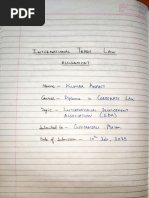 INTERNATIONAL TRADE LAW
ASSIGNMENT
Name :- KUMAR
Course :- Diploma in CORPORATE LAW
Topic :- INTERNATIONAL DEVELOPMENT
ASSOCIATION (IDA)
Submitted to :-
Date of Submission :- 10th